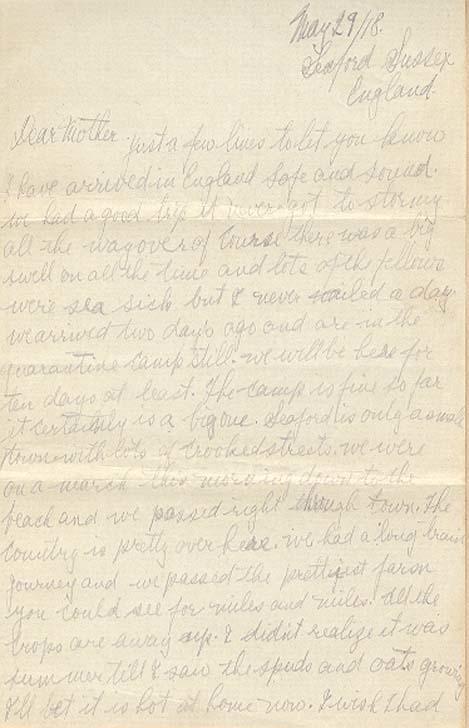 May 29/18.
Seaford Sussex
England.
Dear Mother. Just a few lines to let you know
I have arrived in England safe and sound.
we had a good trip it never got to stormy
all the way over of course there was a big
swell on all the time and lots of the fellows
were sea sick but I never ailed a day
we arrived two days ago and are in the
quarantine camp still. we will be here for
ten days at least. The camp is fine so far
it certainly is a big one. Seaford is only a small
town with lots of crooked streets. we were
on a march this morning down to the
beach and we passed right through town. The
country is pretty over here. we had a long train
journey and we passed the prettiest farm
you could see for miles and miles. All the
crops are away up. I didn't realize it was
summer till I saw the spuds and oats growing
I'll bet it is hot at home now. I wish I had